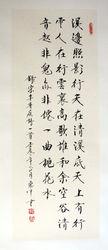 溪邊照影行天在清溪底天上有行
雲人在行雲裏高歌誰和余空谷清
音起非鬼亦非仙一曲桃花水
宋辛棄疾詞一首